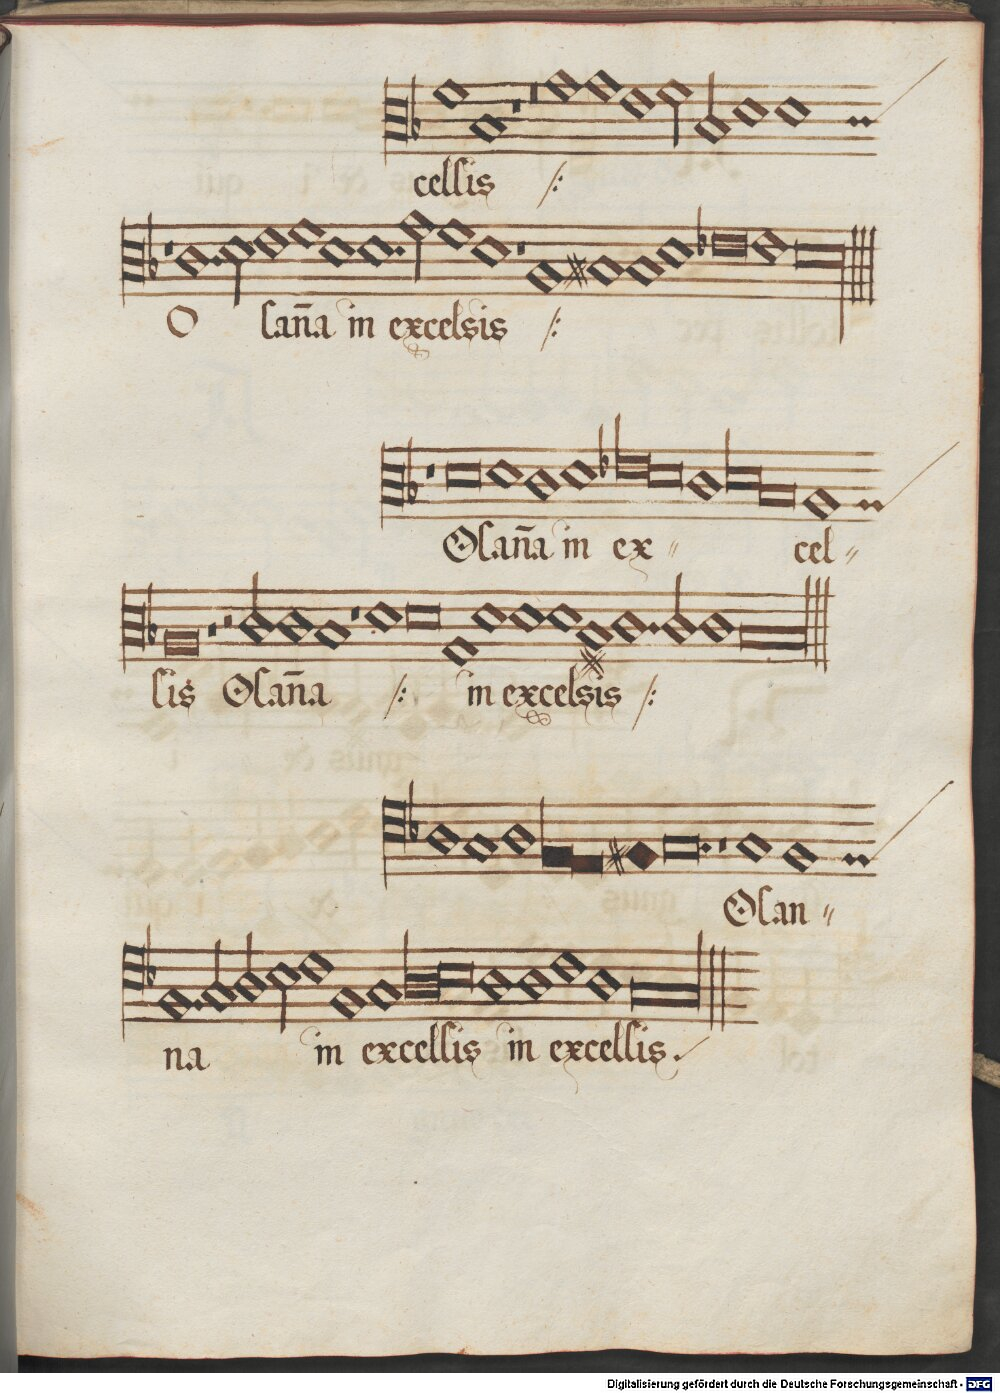 cellis /:
O saña in excelsis /:
Osaña in ex〃 cel〃
sis Osaña /: in excelsis /:
Osan〃
na in excellis in excellis.
Digitalisierung gefördert durch die Deutsche Forschungsgemeinschaft - DFG